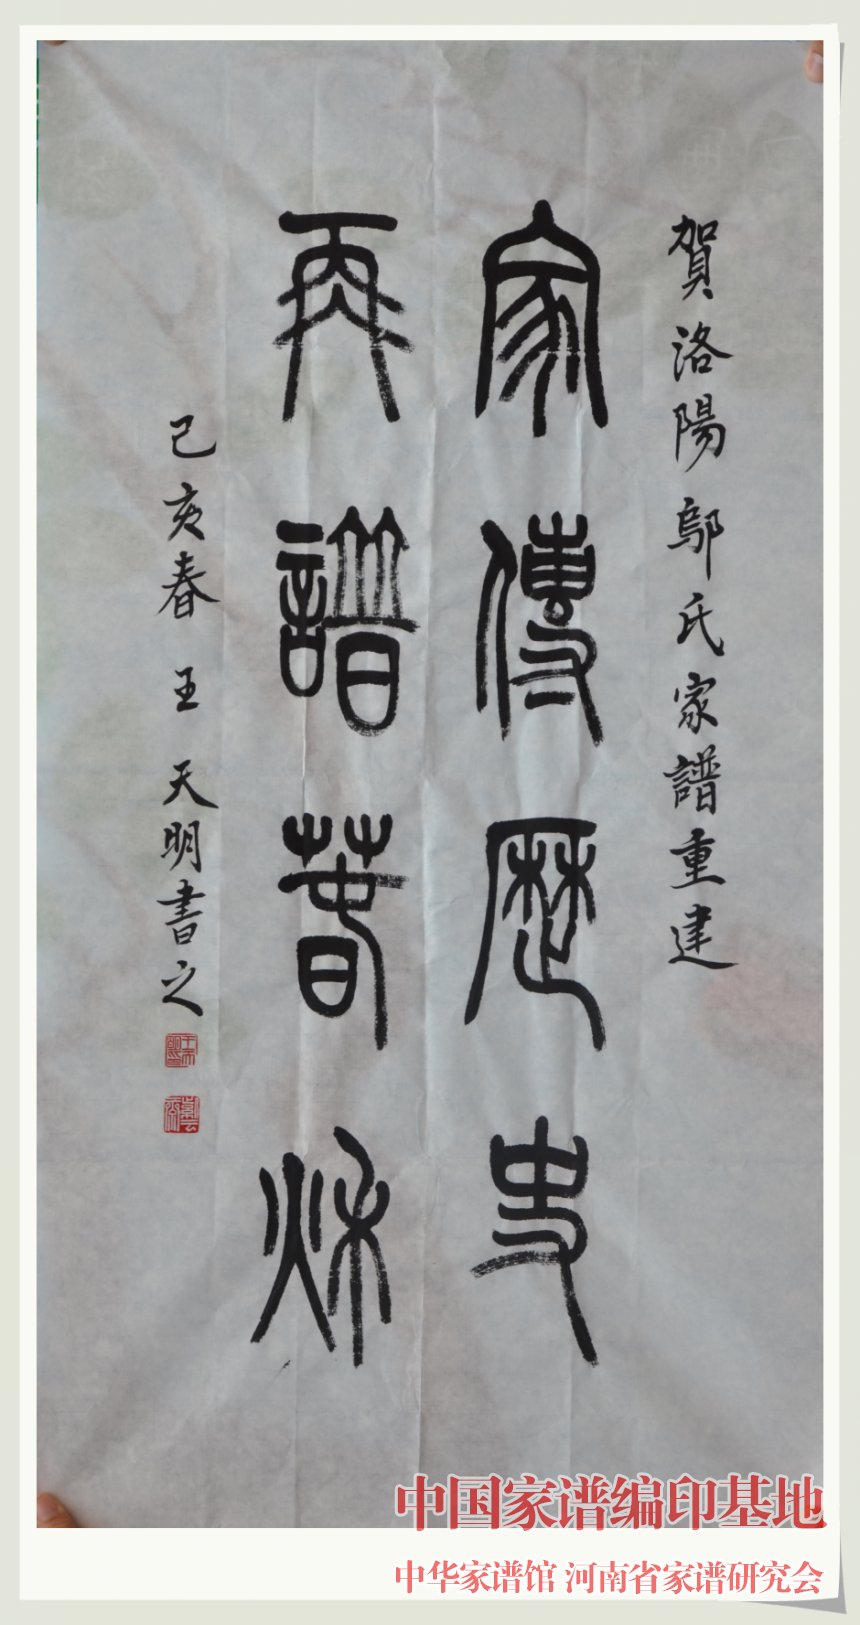 賀洛陽鄔氏家譜重建
家傳歷史
再譜萅秌
己亥春 王天明書之
中国家谱编印基地
中华家谱馆 河南省家谱研究会